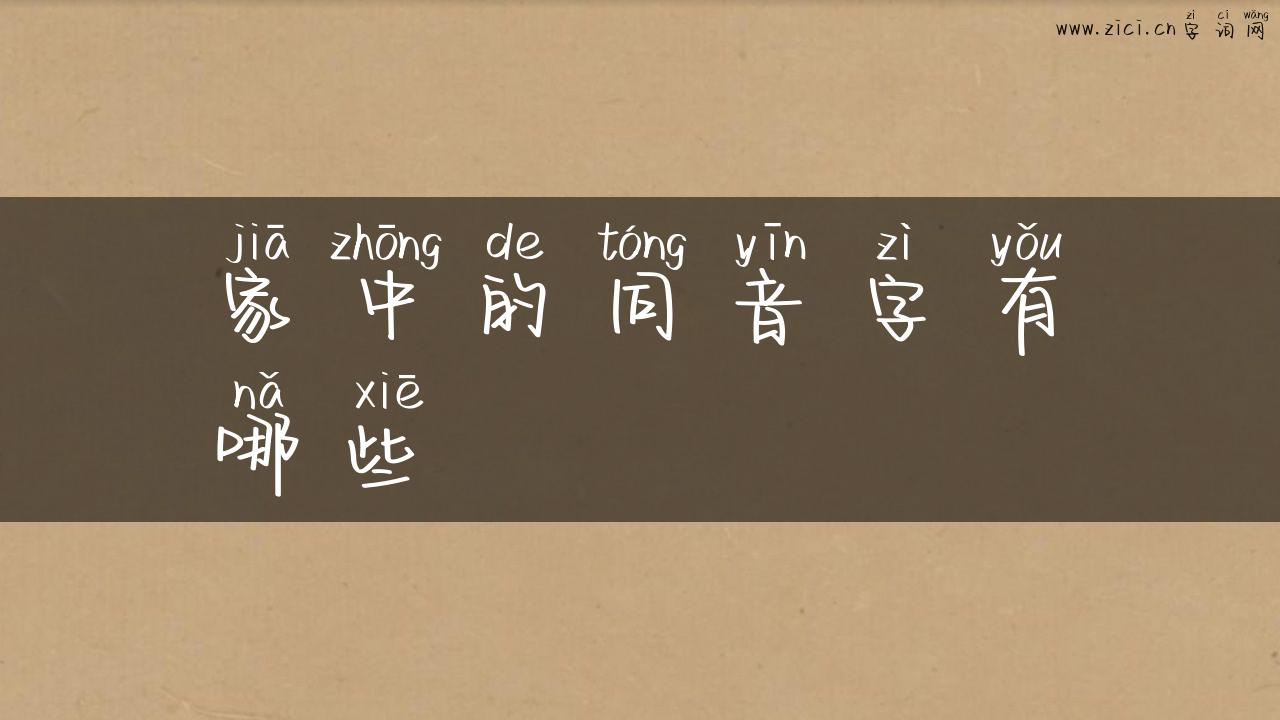 zì cí wǎng
www.zici.cn 字词网
jiā zhōng de tóng yīn zì yǒu
家中的同音字有
nǎ xiē
哪些